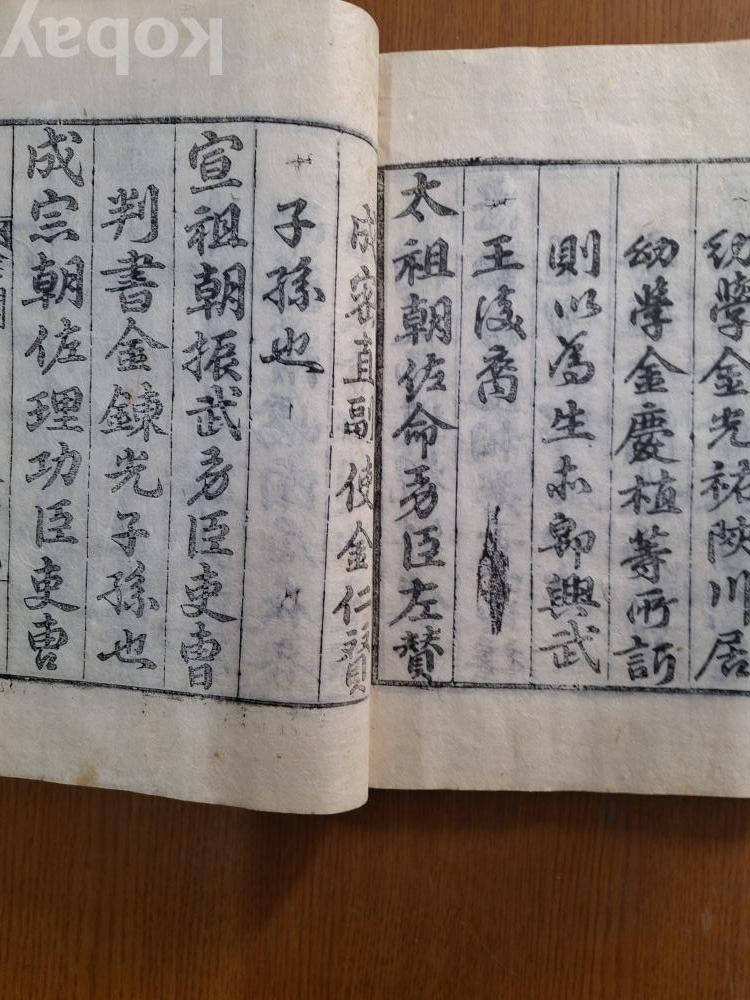 幼學金光祐陜川居
幼學金慶植等所訴
則以爲生亦郞興武
王後裔
太祖朝佐命勇臣左贊
成密直副使金仁贊
子孫也
宣祖朝振武勇臣吏曺
判書金鍊光子孫也
成宗朝佐理功臣吏曺
kobay